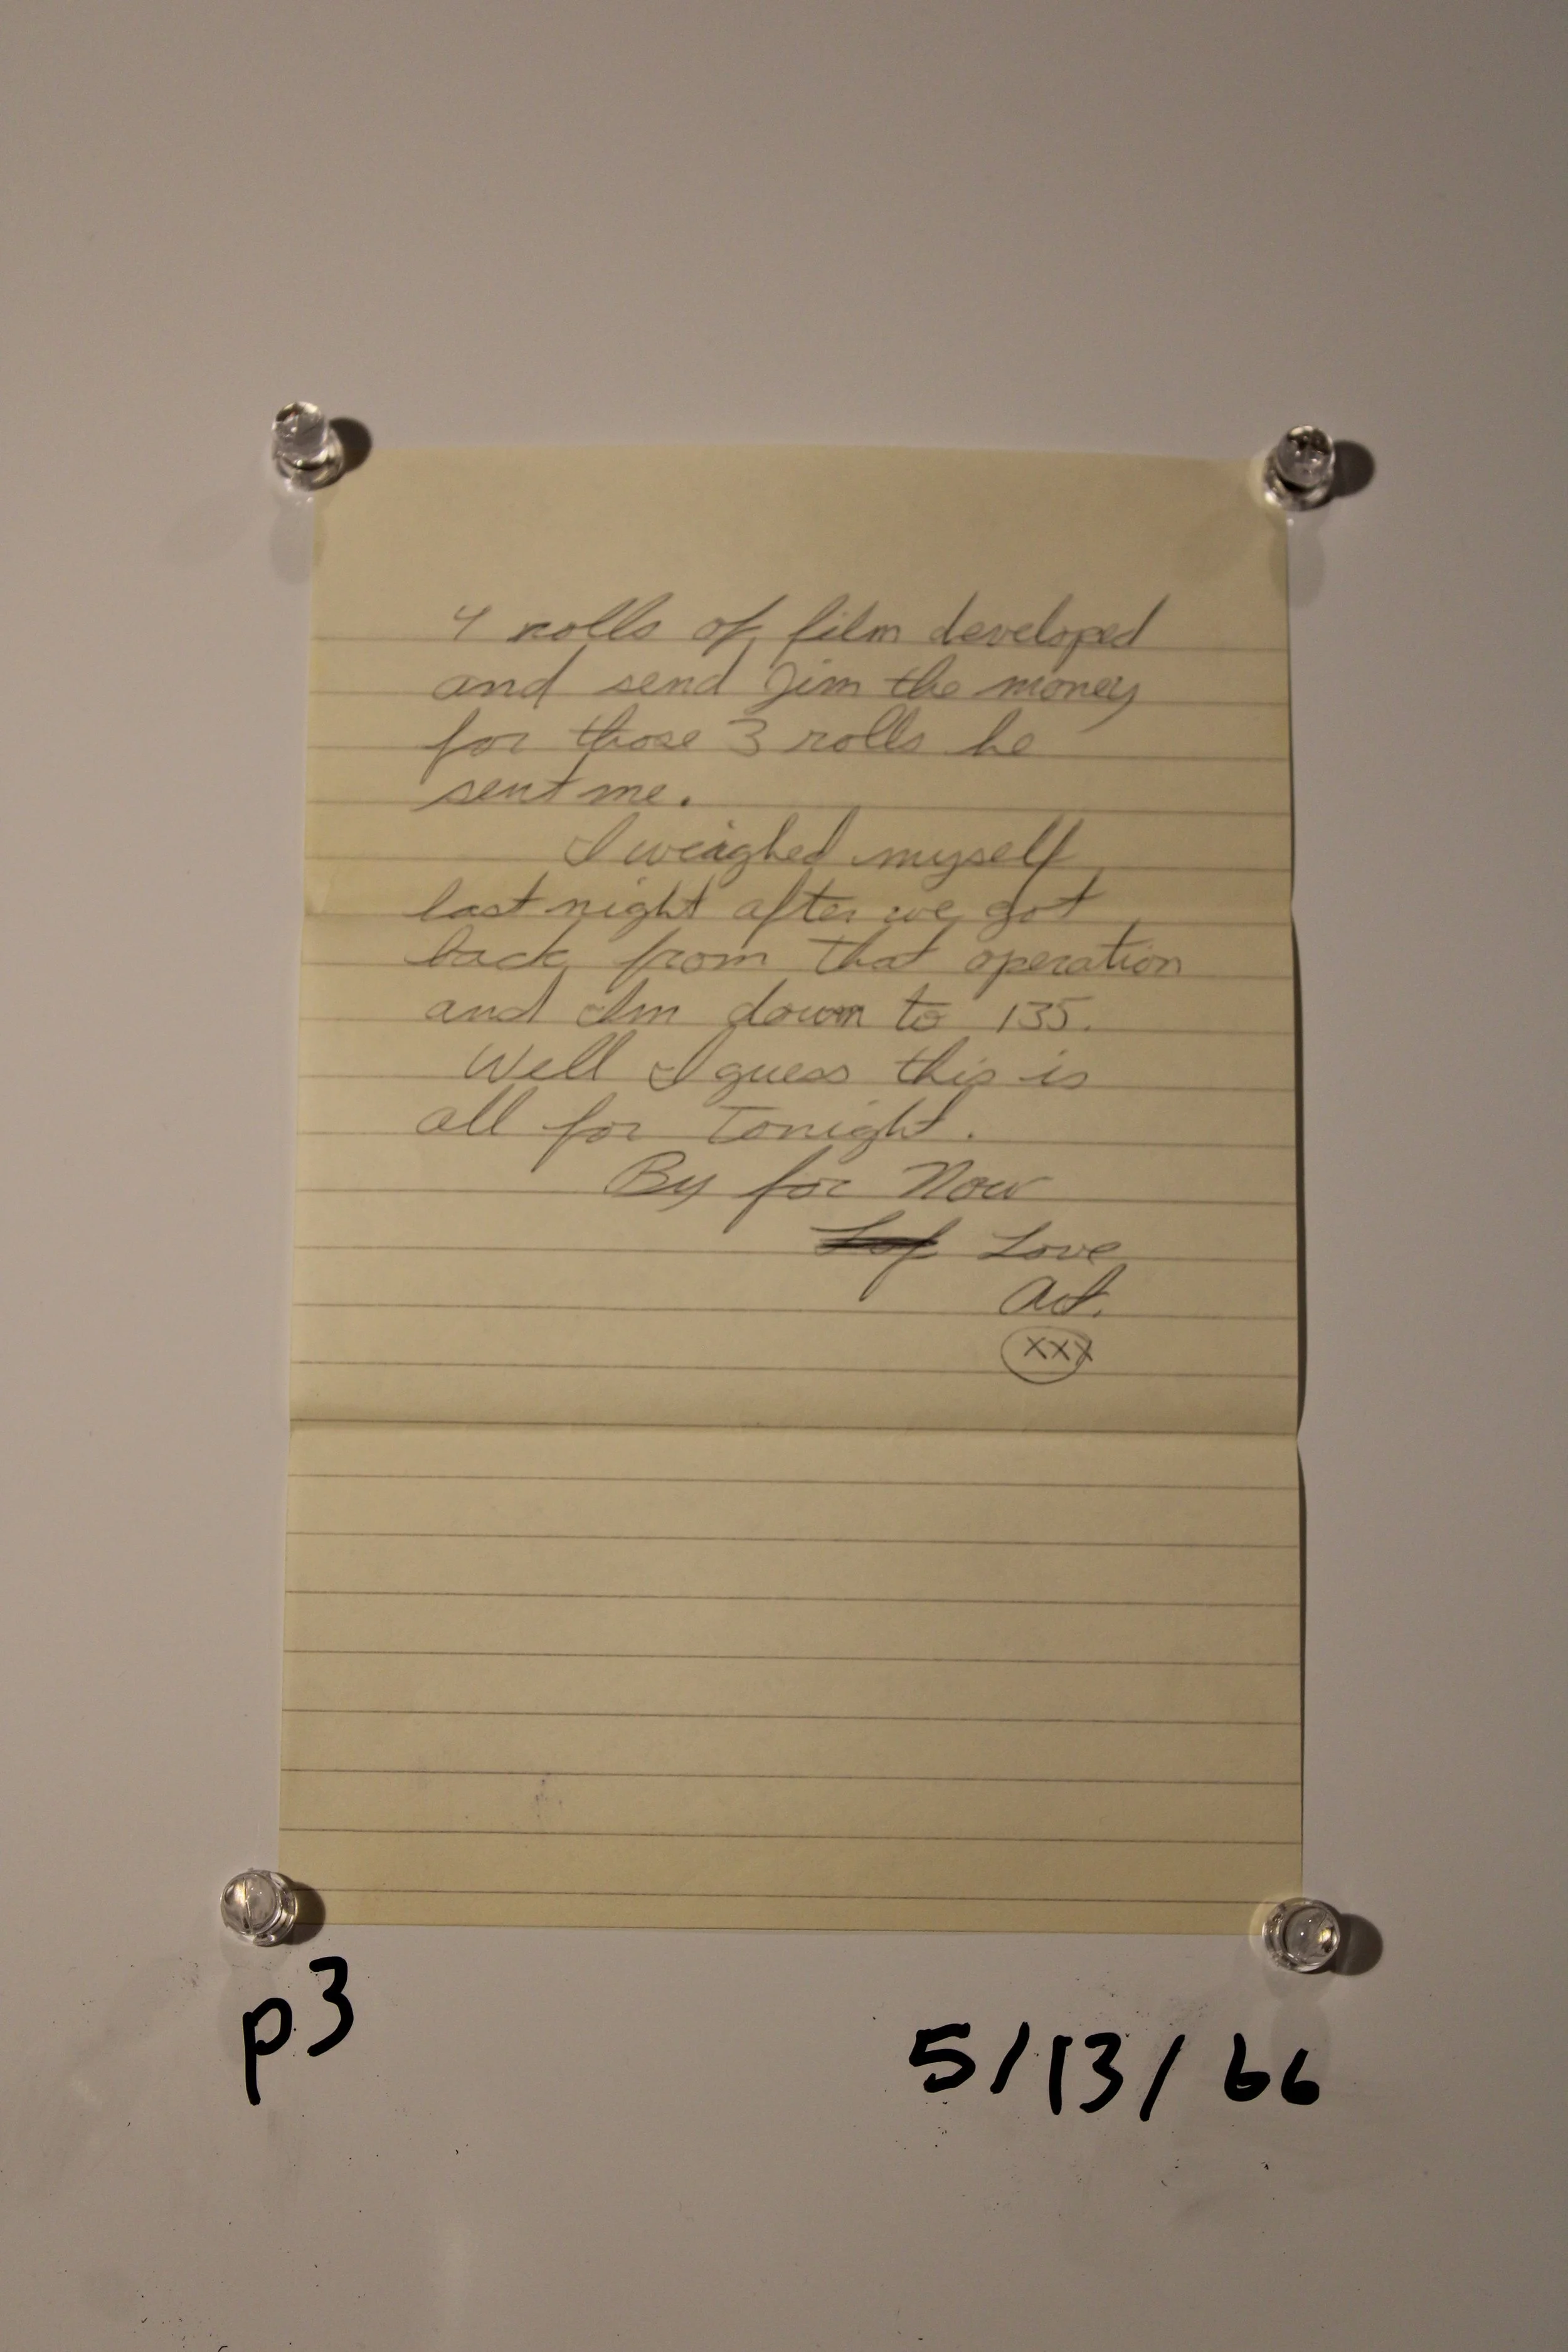 4 rolls of film developed
and send Jim the money
for those 3 rolls he
sent me.
I weighed myself
last night after we got
back from that operation
and Im down to 135.
Well I guess this is
all for Tonight.
By for Now
Love
Art.
XXX
p3
5/13/66